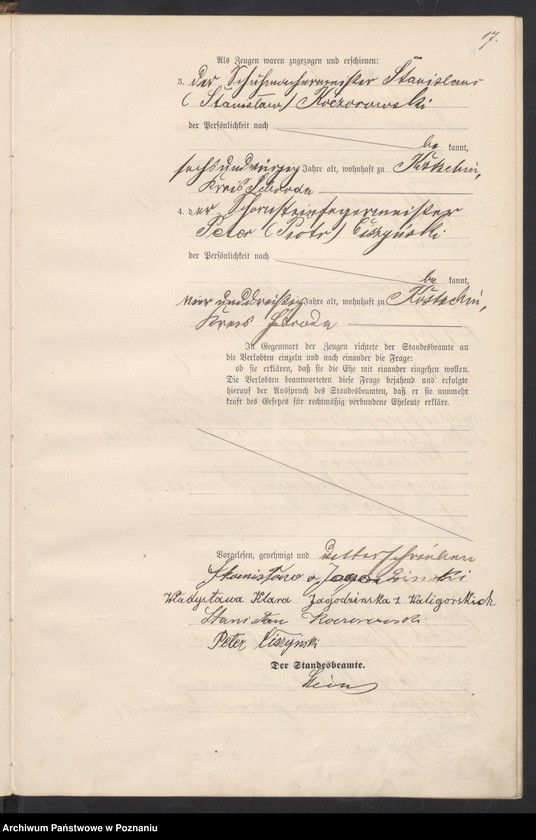 17.
Als Zeugen waren zugezogen und erschienen:
3. der Schuhmachermeister Stanislaus
(Stanisław) Koczorowski
der Persönlichkeit nach
be kannt,
sechsundvierzig Jahre alt, wohnhaft zu Kostschin,
Kreis Schroda
4. der Schornsteinfegermeister
Peter (Piotr) Ciszyński
der Persönlichkeit nach
be kannt,
vierunddreißig Jahre alt, wohnhaft zu Kostschin,
Kreis Schroda
In Gegenwart der Zeugen richtete der Standesbeamte an
die Verlobten einzeln und nach einander die Frage:
ob sie erklären, daß sie die Ehe mit einander eingehen wollen.
Die Verlobten beantworteten diese Frage bejahend und erfolgte
hierauf der Ausspruch des Standesbeamten, daß er sie nunmehr
kraft des Gesetzes für rechtmäßig verbundene Eheleute erkläre.
Vorgelesen, genehmigt und unterschrieben
Stanisław Jagodzinski
Władysława Klara Jagodzinska z Waligorskich
Stanisław Koczorowski
Peter Ciszyński
Der Standesbeamte.
Archiwum Państwowe w Poznaniu